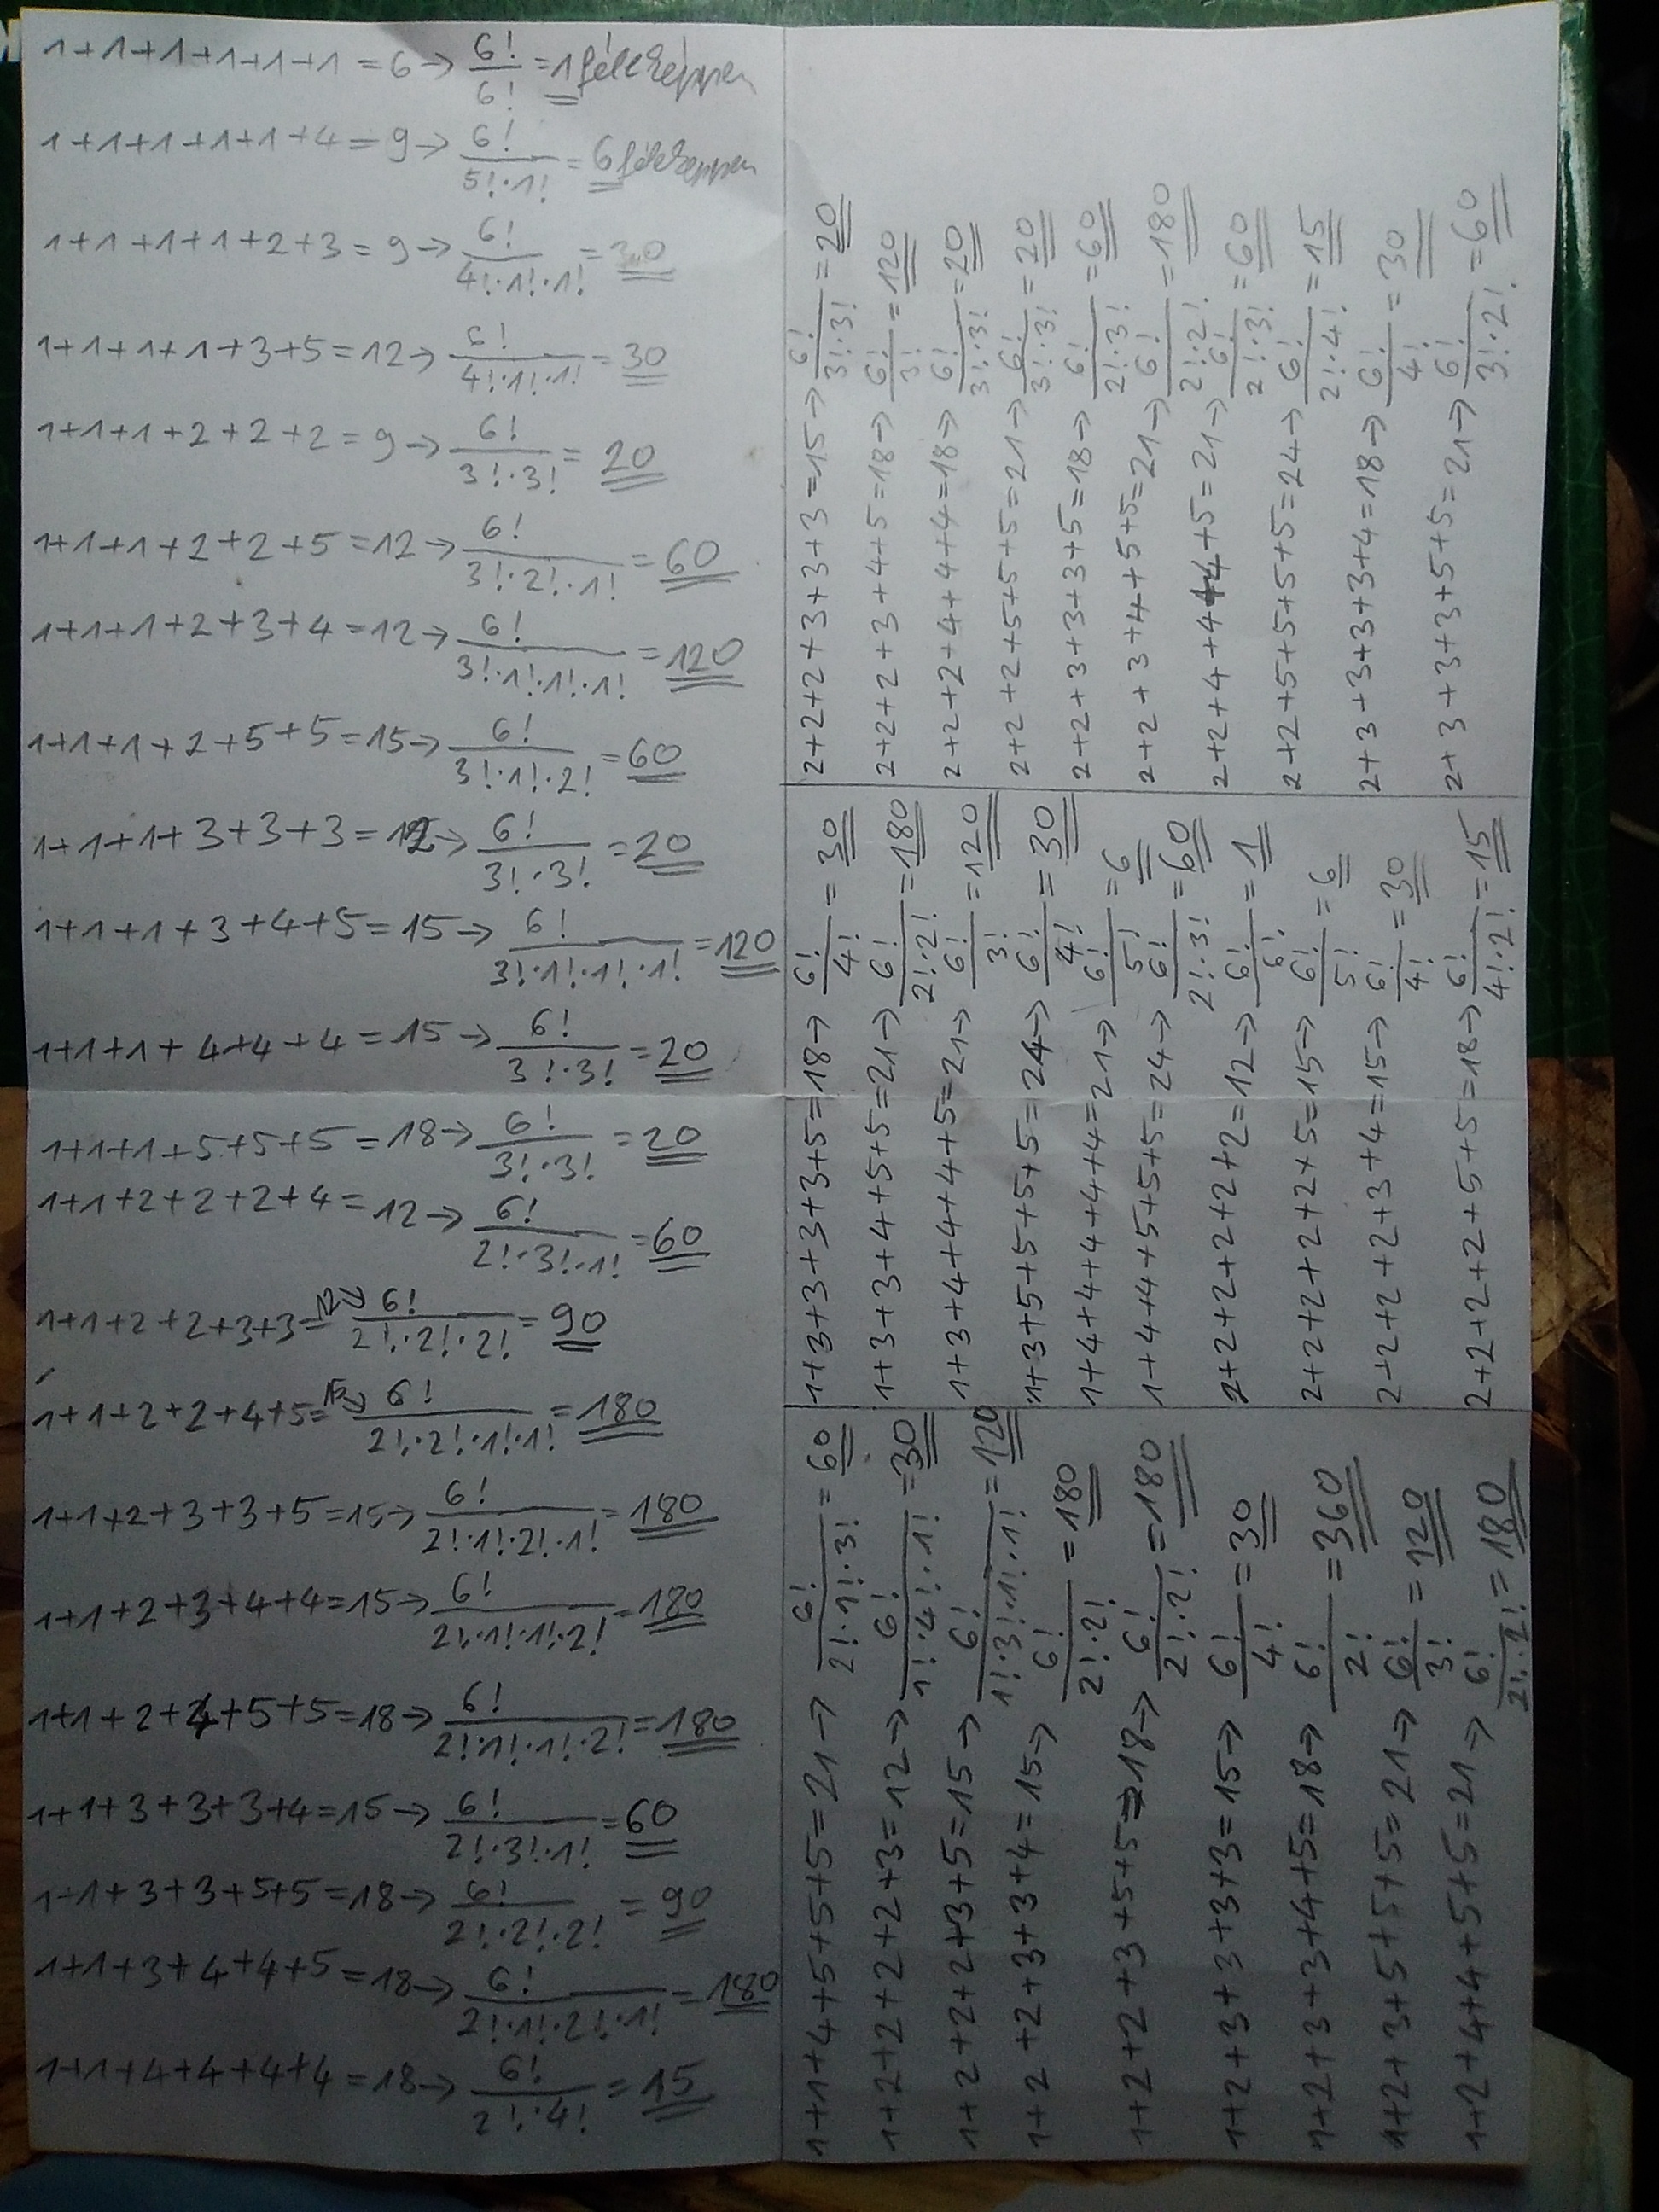 1+1+1+1+1+1=6→ 6!/6! =1 féleképpen
1+1+1+1+1+4=9→ 6!/5!·1! =6 féleképpen
1+1+1+1+2+3=9→ 6!/4!·1!·1! =30
1+1+1+1+3+5=12→ 6!/4!·1!·1! =30
1+1+1+2+2+2=9→ 6!/3!·3! =20
1+1+1+2+2+5=12→ 6!/3!·2!·1! =60
1+1+1+2+3+4=12→ 6!/3!·1!·1!·1! =120
1+1+1+2+5+5=15→ 6!/3!·1!·2! =60
1+1+1+3+3+3=12→ 6!/3!·3! =20
1+1+1+3+4+5=15→ 6!/3!·1!·1!·1! =120
1+1+1+4+4+4=15→ 6!/3!·3! =20
1+1+1+5+5+5=18→ 6!/3!·3! =20
1+1+2+2+2+4=12→ 6!/2!·3!·1! =60
1+1+2+2+3+3=12→ 6!/2!·2!·2! =90
1+1+2+2+4+5=15→ 6!/2!·2!·1!·1! =180
1+1+2+3+3+5=15→ 6!/2!·1!·2!·1! =180
1+1+2+3+4+4=15→ 6!/2!·1!·1!·2! =180
1+1+2+4+5+5=18→ 6!/2!·1!·1!·2! =180
1+1+3+3+3+4=15→ 6!/2!·3!·1! =60
1+1+3+3+5+5=18→ 6!/2!·2!·2! =90
1+1+3+4+4+5=18→ 6!/2!·1!·2!·1! =180
1+1+4+4+4+4=18→ 6!/2!·4! =15
1+1+4+5+5+5=21→ 6!/2!·1!·3! =60
1+2+2+2+2+3=12→ 6!/1!·4!·1! =30
1+2+2+2+3+5=15→ 6!/1!·3!·1!·1! =120
1+2+2+3+3+4=15→ 6!/2!·2! =180
1+2+2+3+5+5=18→ 6!/2!·2! =180
1+2+3+3+3+3=15→ 6!/4! =30
1+2+3+3+4+5=18→ 6!/2! =360
1+2+3+5+5+5=21→ 6!/3! =120
1+2+4+4+5+5=21→ 6!/2!·2! =180
1+3+3+3+3+5=18→ 6!/4! =30
1+3+3+4+5+5=21→ 6!/2!·2! =180
1+3+4+4+4+5=21→ 6!/3! =120
1+3+5+5+5+5=24→ 6!/4! =30
1+4+4+4+4+4=21→ 6!/5! =6
1+4+4+5+5+5=24→ 6!/2!·3! =60
2+2+2+2+2+2=12→ 6!/6! =1
2+2+2+2+2+5=15→ 6!/5! =6
2+2+2+2+3+4=15→ 6!/4! =30
2+2+2+2+5+5=18→ 6!/4!·2! =15
2+2+2+3+3+3=15→ 6!/3!·3! =20
2+2+2+3+4+5=18→ 6!/3! =120
2+2+2+4+4+4=18→ 6!/3!·3! =20
2+2+2+5+5+5=21→ 6!/3!·3! =20
2+2+3+3+3+5=18→ 6!/2!·3! =60
2+2+3+4+5+5=21→ 6!/2!·2! =180
2+2+4+4+4+5=21→ 6!/2!·3! =60
2+2+5+5+5+5=24→ 6!/2!·4! =15
2+3+3+3+3+4=18→ 6!/4! =30
2+3+3+3+5+5=21→ 6!/3!·2! =60